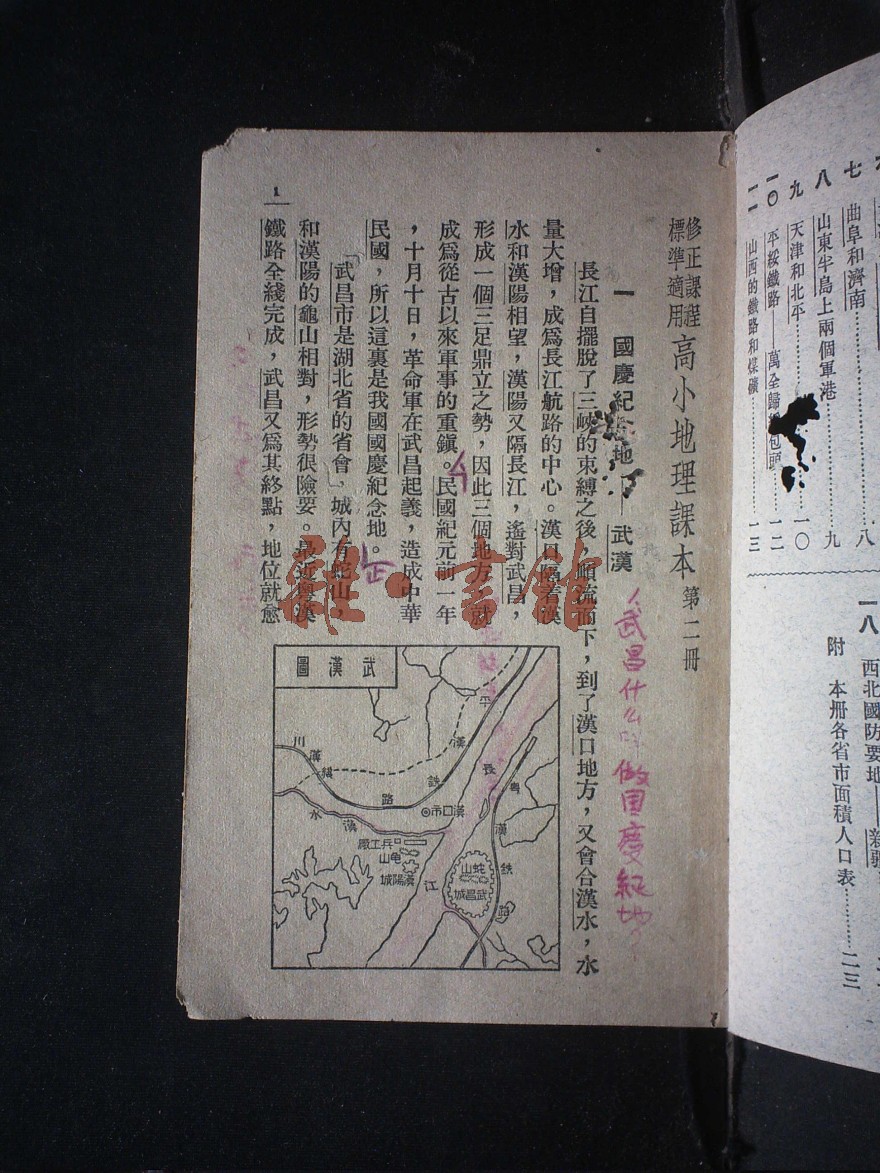 七 曲阜和濟南……八
八 山東半島上兩個軍港……九
九 天津和北平……一〇
一〇 平綏鐵路——萬全歸 包頭……一二
一一 山西的鐵路和煤礦……一三
一八 西北國防要地——新疆
附 本册各省市面積人口表……二三
修正課程標準適用 高小地理課本 第二冊
一 國慶紀念地——武漢
武昌什么 做国慶紀地
長江自擺脫了三峽的束縛之後，順流而下，到了漢口地方，又會合漢水，水
量大增，成爲長江航路的中心。漢口隔着漢
水和漢陽相望，漢陽又隔長江，遙對武昌，
形成一個三足鼎立之勢，因此三個地方，就
成爲從古以來軍事的重鎮。民國紀元前一年
，十月十日，革命軍在武昌起義，造成中華
民國，所以這裏是我國國慶紀念地。
武昌市是湖北省的省會，城內有蛇山，
和漢陽的龜山相對，形勢很險要。最近粵漢
鐵路全綫完成，武昌又爲其終點，地位就愈
1
武漢圖
平漢鐵路
川漢綫
漢水
長江
粤漢鐵路
漢口市
兵工廠
龟山
漢陽城
蛇山
武昌城
雅·書館